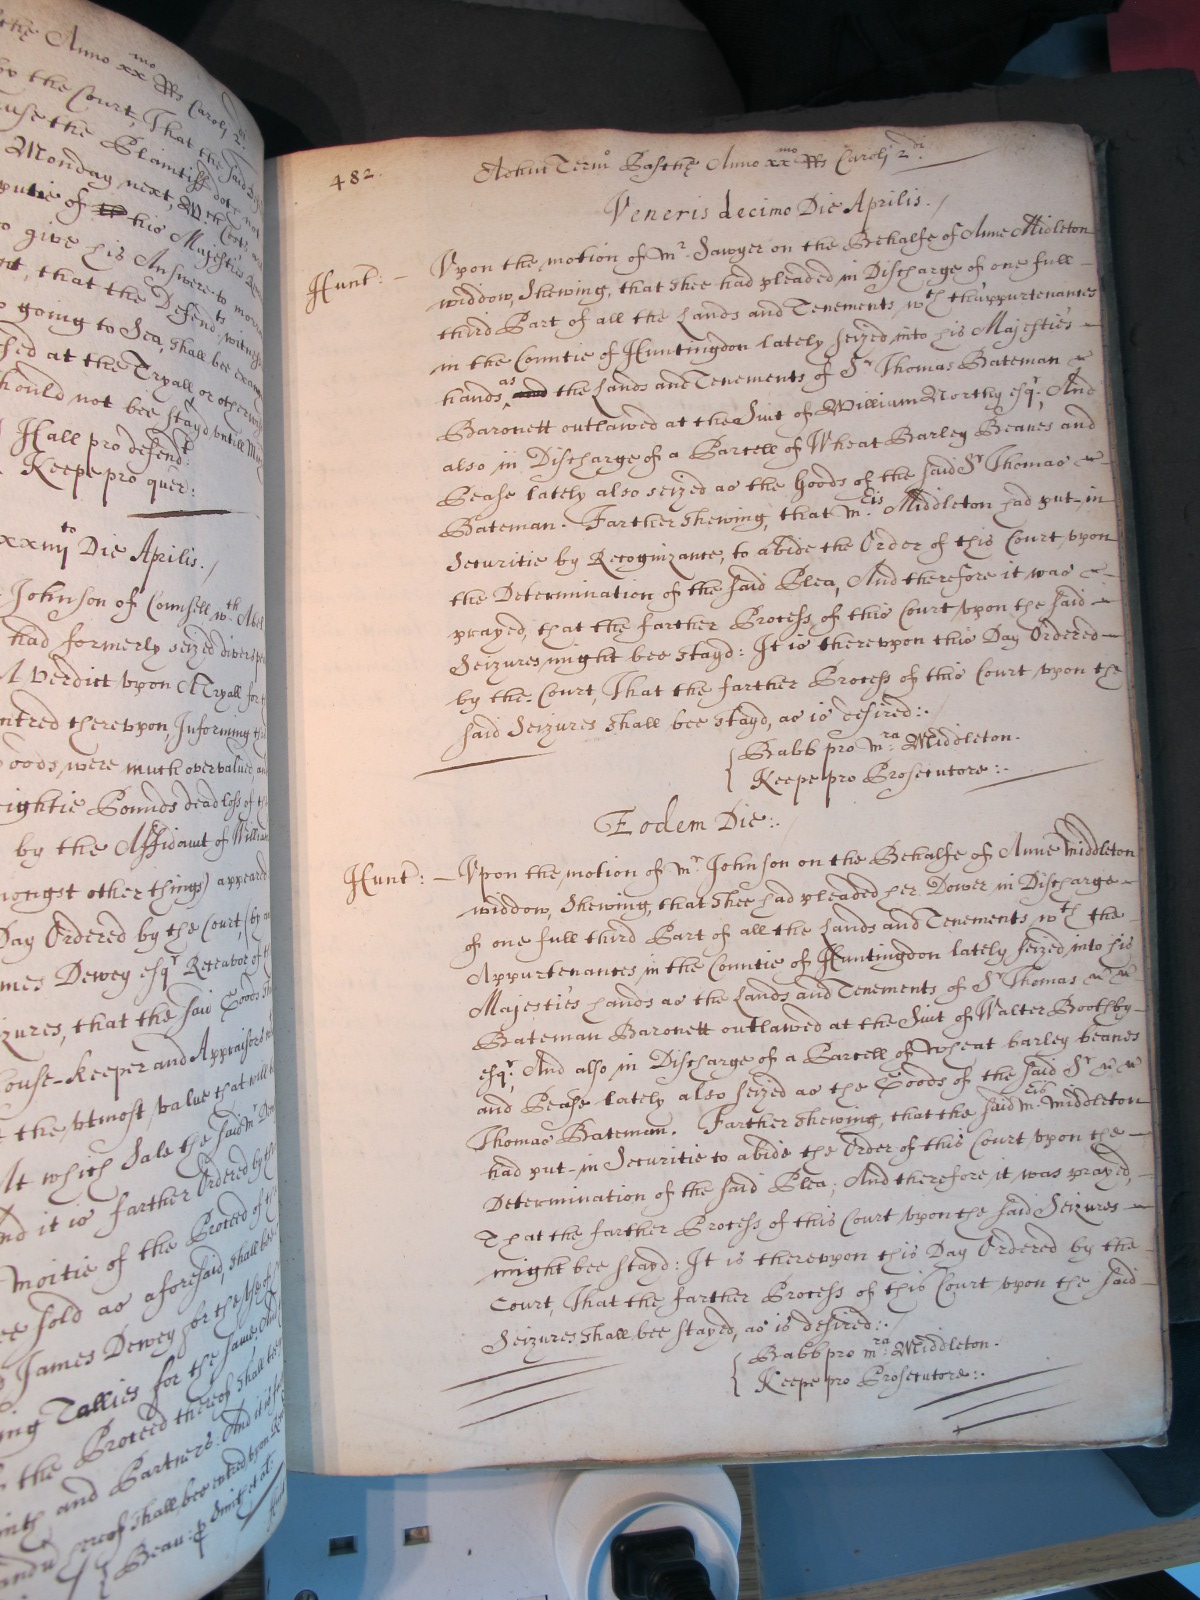 Anno xxmo RRs Caroli 2di
by the Court, That the said
the Plaintiff doe not
Monday next, wth
of his Majesties
give his Answere to
that the Defendts witnesses
going to Sea, shall bee
at the Tryall or otherwise
should not bee stayd untill
Hall pro defend:
Keepe pro quer:
xxiiijto Die Aprilis./
Johnson of Counsell wth
had formerly seized divers
Verdict upon A Tryall for
thereupon, Informing
Goods, were much overvalued, and
eightie Pounds dead losse of
by the Affidavit of
amongst other things) appeared
Day Ordered by the Court, (by
James Dewey esqr Receavor of
that the said Goods
House-keeper and Appraisers
the utmost value that will
At which Sale the said mr
And it is farther Ordered by the
Moitie of the Proceed of
sold as aforesaid, shall bee
James Dewey for the Use of
Tallies for the same, And
the Proceed thereof shall
and Partners. And it is
thereof shall bee entred upon
Beau: p Smith et al:
482. Adhuc Termo Paschę Anno xxmo RRs Caroli 2di
Veneris decimo Die Aprilis./
Hunt: - Upon the motion of mr. Sawyer on the Behalfe of Anne Midleton
widdow, Shewing, that shee had pleaded in Discharge of one full -
third Part of all the Lands and Tenements wth thappurtenances
in the Countie of Huntingdon lately seized into his Majesties -
hands, as and the Lands and Tenements of Sr Thomas Bateman
Baronett outlawed at the Suit of William Northy esqr. And
also in Discharge of a Parcell of Wheat Barley Beanes and
Pease lately also seized as the Goods of the said Sr Thomas
Bateman. Farther shewing, that mris Middleton had put-in
Securitie by Recognizance, to abide the Order of this Court upon
the Determination of the said Plea, And therefore it was
prayed, that the farther Process of this Court upon the said -
Seizures might bee stayd: It is thereupon this Day Ordered -
by the Court, That the farther Process of this Court upon the
said Seizures shall bee stayd, as is desired:.
Babb pro mra: Middleton.
Keepe pro Prosecutore:.
Eodem Die:.
Hunt: - Upon the motion of mr Johnson on the Behalfe of Anne Middleton
widdow, Shewing, that shee had pleaded her Dower in Discharge -
of one full third Part of all the Lands and Tenements wth the -
Appurtenances, in the Countie of Huntingdon lately seized into his
Majesties hands as the Lands and Tenements of Sr Thomas
Bateman Baronett outlawed at the Suit of Walter Boothby -
esqr, And also in Discharge of a Parcell of Wheat barley beanes
and Pease lately also seized as the Goods of the said Sr
Thomas Bateman. Farther shewing, that the said mris Middleton
had put-in Securitie to abide the Order of this Court upon the -
Determination of the said Plea; And therefore it was prayed, -
That the farther Process of this Court upon the said Seizures -
might bee stayd: It is thereupon this Day Ordered by the -
Court, That the farther Process of this Court upon the said -
Seizures shall bee stayed, as is desired:.
Babb pro mra: Middleton.
Keepe pro Prosecutore:.